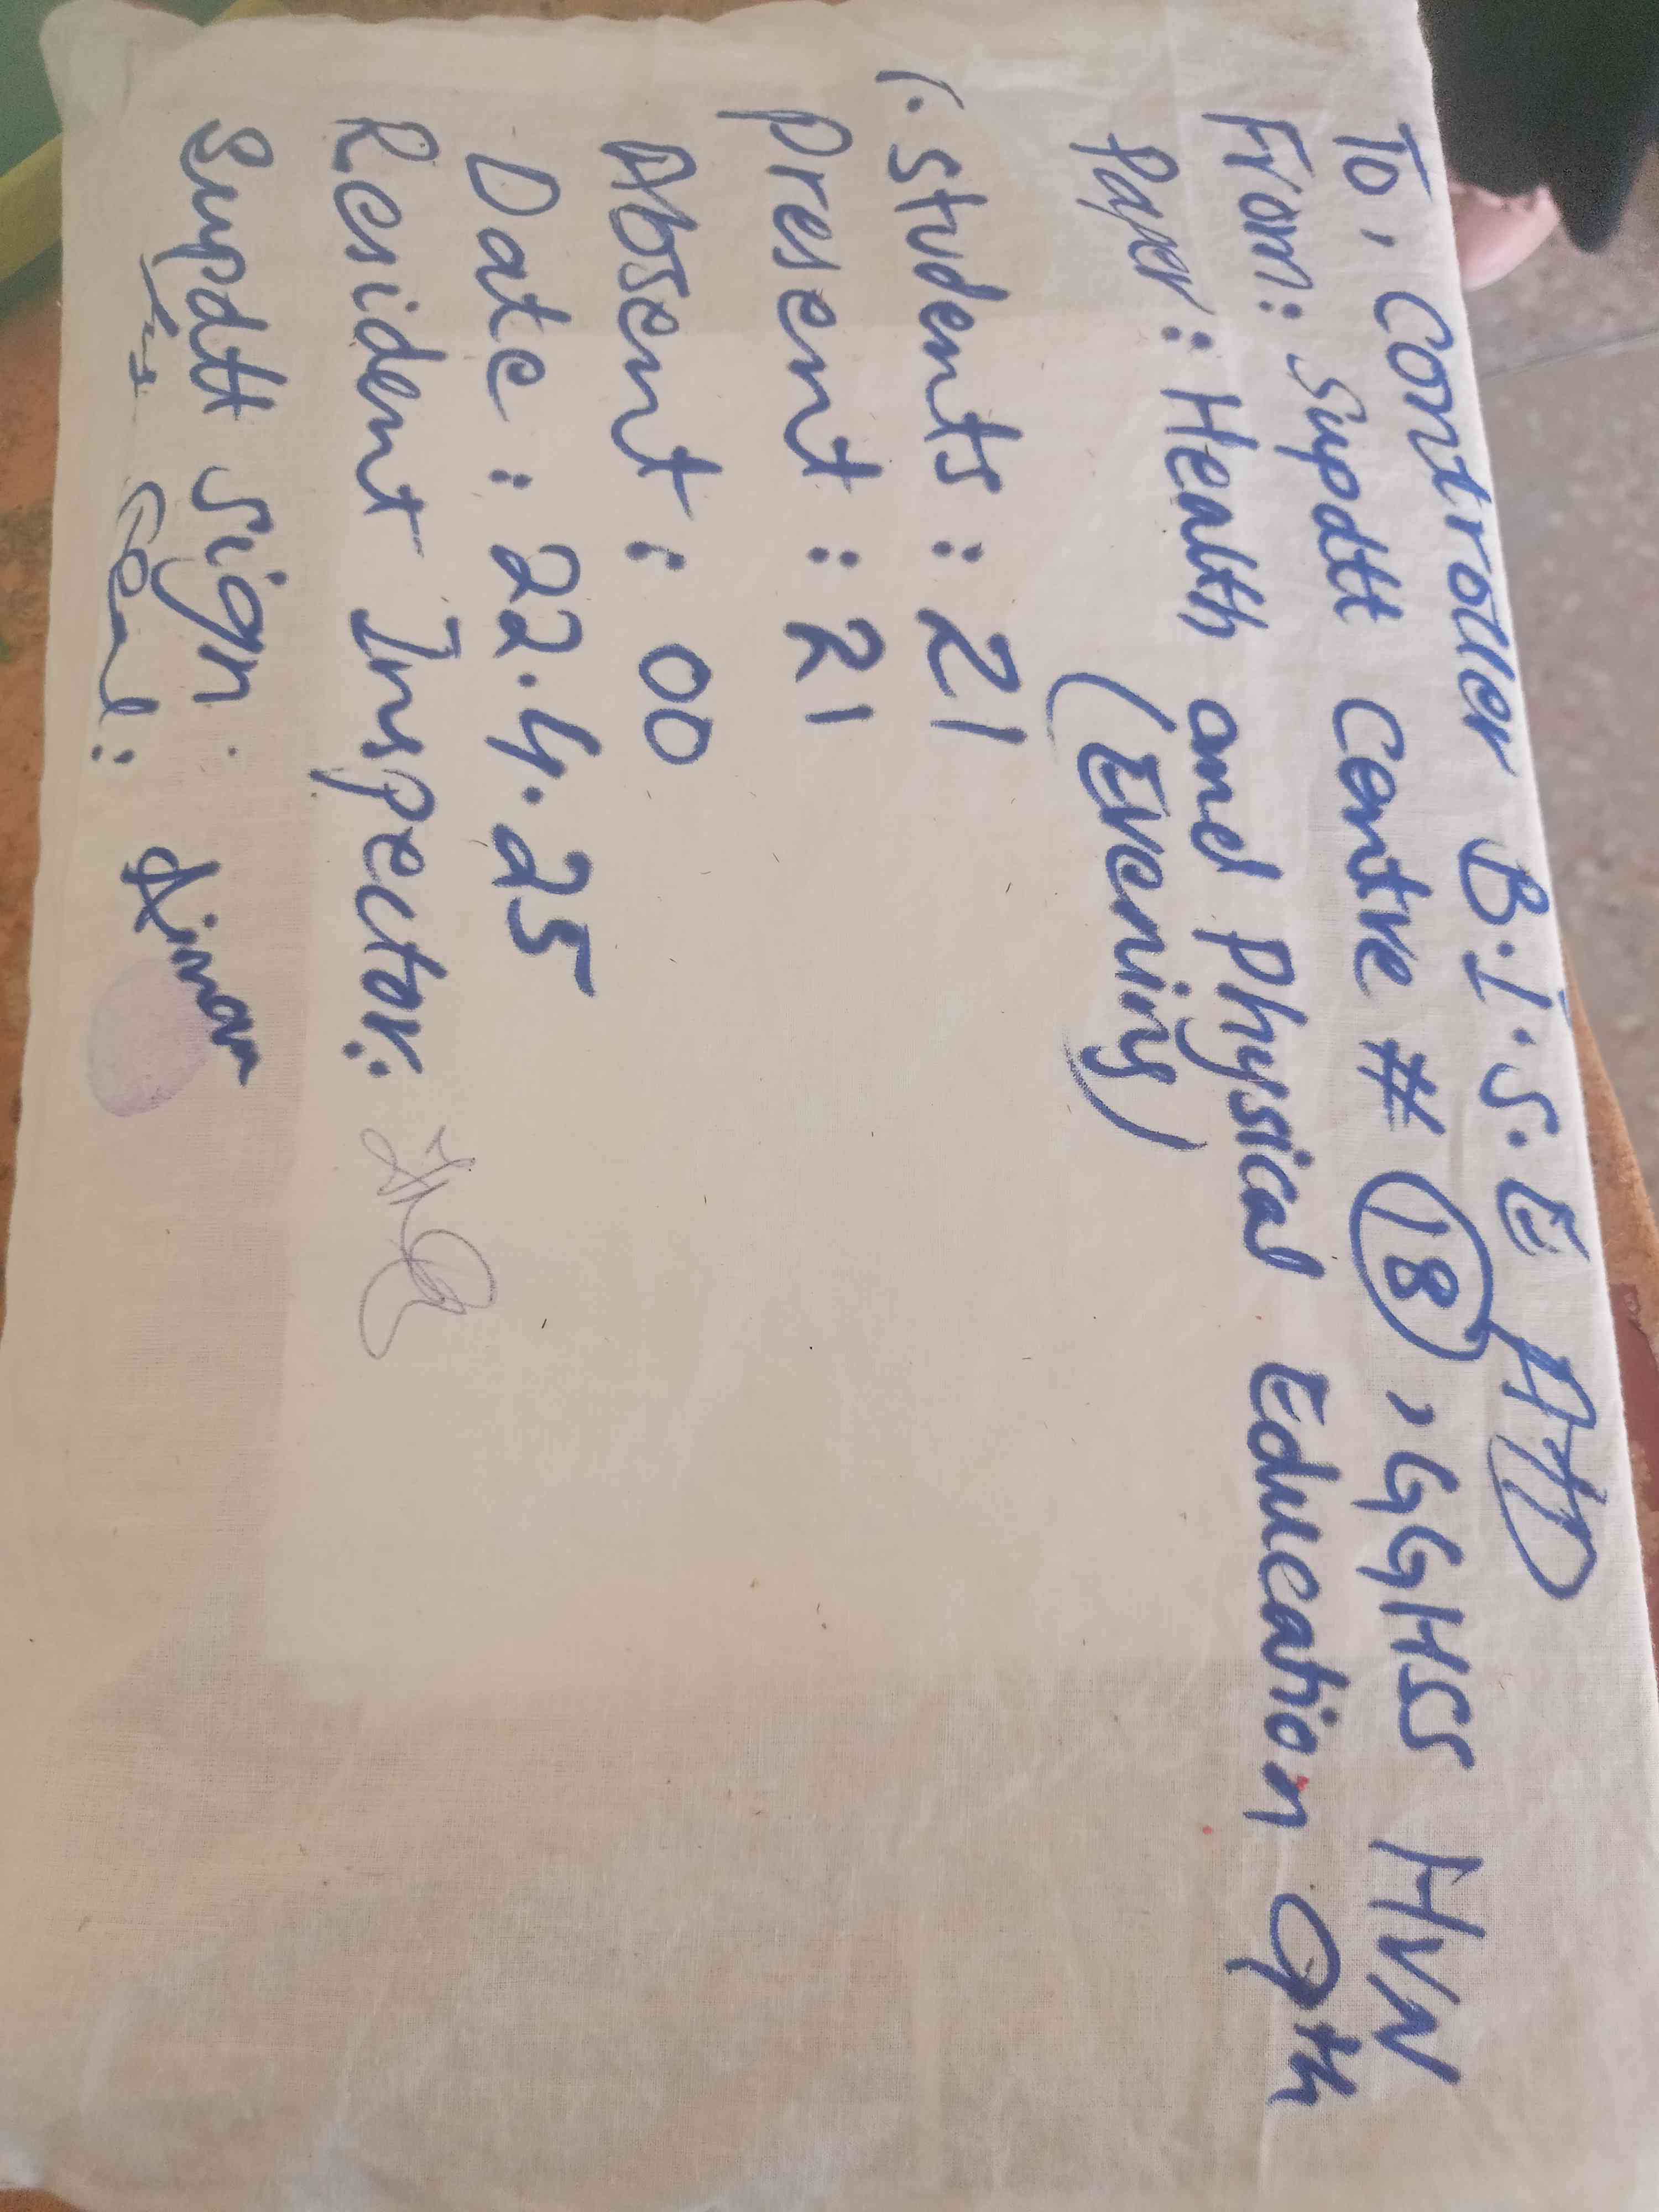 To, Controller B.I.S.E ATD
From: Supdtt Centre # 18, GGHSS HVN
Paper: Health and Physical Education 9th
(Evening)
1. Students : 21
Present : 21
Absent : 00
Date : 22.4.25
Resident Inspector:
Supdtt Sign
Seal: